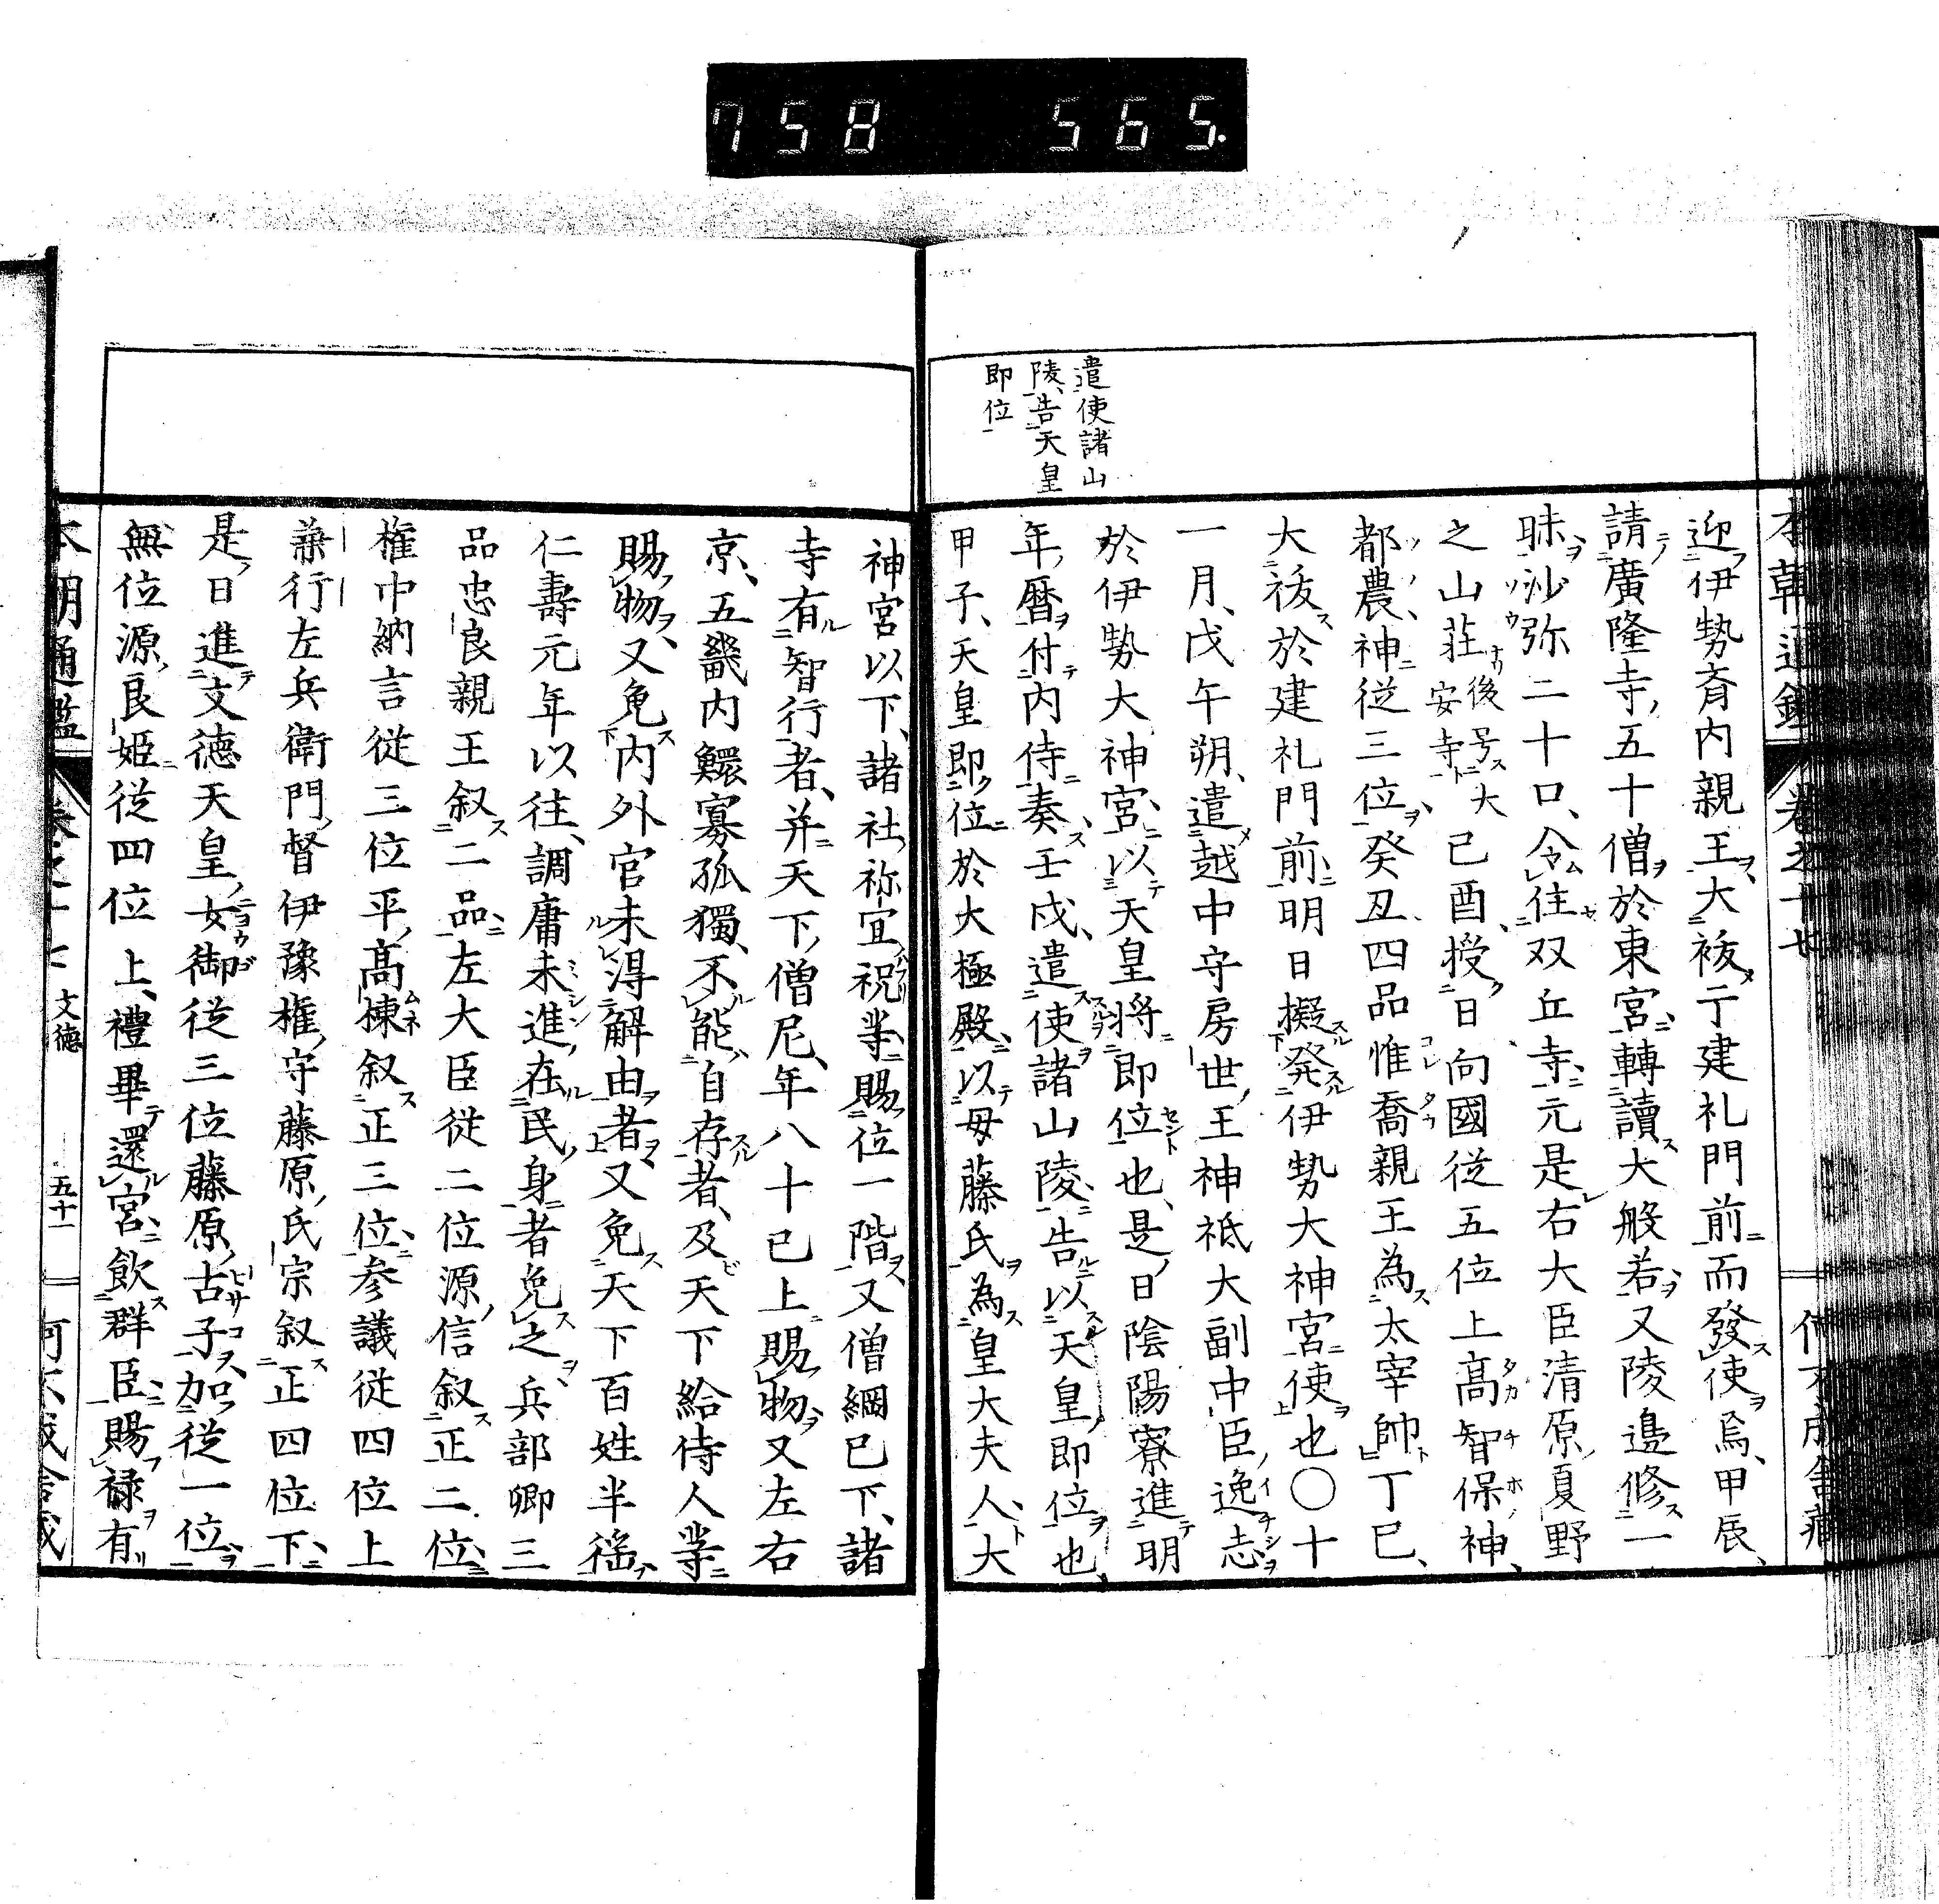 758 565.
本朝通鑑 卷之十七
遣使諸山
陵告天皇
即位
迎伊勢斎内親王大祓于建礼門前而發使焉甲辰
請廣隆寺五十僧於東宮轉讀大般若又陵邉修一
昧沙弥二十口令住双丘寺元是右大臣清原夏野
之山荘後号大安寺己酉授日向國従五位上髙智保神
都農神従三位癸丑四品惟喬親王為太宰帥丁巳
大祓於建礼門前明日擬発伊勢大神宮使也〇十
一月戊午朔遣越中守房世王神祇大副中臣逸志
於伊勢大神宮以天皇将即位也是日陰陽寮進明
年暦付内侍奏壬戌遣使諸山陵告以天皇即位也
甲子天皇即位於大極殿以母藤氏為皇大夫人大
神宮以下諸社祢宜祝等賜位一階又僧綱已下諸
寺有智行者并天下僧尼年八十已上賜物又左右
京五畿内鰥寡孤獨不能自存者及天下給侍人等
賜物又免内外官未淂解由者又免天下百姓半徭
仁壽元年以往調庸未進在民身者免之兵部卿三
品忠良親王叙二品左大臣従二位源信叙正二位
権中納言従三位平髙棟叙正三位参議従四位上
兼行左兵衛門督伊豫権守藤原氏宗叙正四位下
是日進文徳天皇女御従三位藤原古子加従一位
無位源良姫従四位上禮畢還宮飲群臣賜禄有
本朝通鑑 卷之十七 文徳 五十一